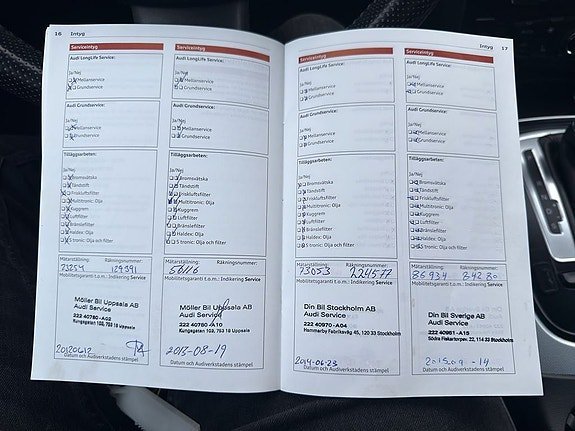 16 Intyg
Serviceintyg
Audi LongLife Service:
Ja/Nej
Mellanservice
Grundservice
Audi Grundservice:
Ja/Nej
Mellanservice
Grundservice
Tilläggsarbeten:
Ja/Nej
Bromsvätska
Tändstift
Friskluftsfilter
Multitronic: Olja
Kuggrem
Luftfilter
Bränslefilter
Haldex: Olja
S tronic: Olja och filter
Mätarställning: Räkningsnummer:
73254 129391
Mobilitetsgaranti t.o.m.: Indikering Service
Möller Bil Uppsala AB
Audi Service
222 40760 -A02
Kungsgatan 103, 753 18 Uppsala
20120612
Datum och Audiverkstadens stämpel
Serviceintyg
Audi LongLife Service:
Ja/Nej
Mellanservice
Grundservice
Audi Grundservice:
Ja/Nej
Mellanservice
Grundservice
Tilläggsarbeten:
Ja/Nej
Bromsvätska
Tändstift
Friskluftsfilter
Multitronic: Olja
Kuggrem
Luftfilter
Bränslefilter
Haldex: Olja
S tronic: Olja och filter
Mätarställning: Räkningsnummer:
56116
Mobilitetsgaranti t.o.m.: Indikering Service
Möller Bil Uppsala AB
Audi Service
222 40760 -A10
Kungsgatan 103, 753 18 Uppsala
2013-08-19
Datum och Audiverkstadens stämpel
Serviceintyg
Audi LongLife Service:
Ja/Nej
Mellanservice
Grundservice
Audi Grundservice:
Ja/Nej
Mellanservice
Grundservice
Tilläggsarbeten:
Ja/Nej
Bromsvätska
Tändstift
Friskluftsfilter
Multitronic: Olja
Kuggrem
Luftfilter
Bränslefilter
Haldex: Olja
S tronic: Olja och filter
Mätarställning: Räkningsnummer:
73053 224577
Mobilitetsgaranti t.o.m.: Indikering Service
Din Bil Stockholm AB
Audi Service
222 40970 -A04
Hammarby Fabriksväg 45, 120 33 Stockholm
2014-06-23
Datum och Audiverkstadens stämpel
Intyg 17
Serviceintyg
Audi LongLife Service:
Ja/Nej
Mellanservice
Grundservice
Audi Grundservice:
Ja/Nej
Mellanservice
Grundservice
Tilläggsarbeten:
Ja/Nej
Bromsvätska
Tändstift
Friskluftsfilter
Multitronic: Olja
Kuggrem
Luftfilter
Bränslefilter
Haldex: Olja
S tronic: Olja och filter
Mätarställning: Räkningsnummer:
86934 84280
Mobilitetsgaranti t.o.m.: Indikering Service
Din Bil Sverige AB
Audi Service
222 40981 -A15
Södra Fiskartorpsv. 22, 114 33 Stockholm
Datum och Audiverkstadens stämpel